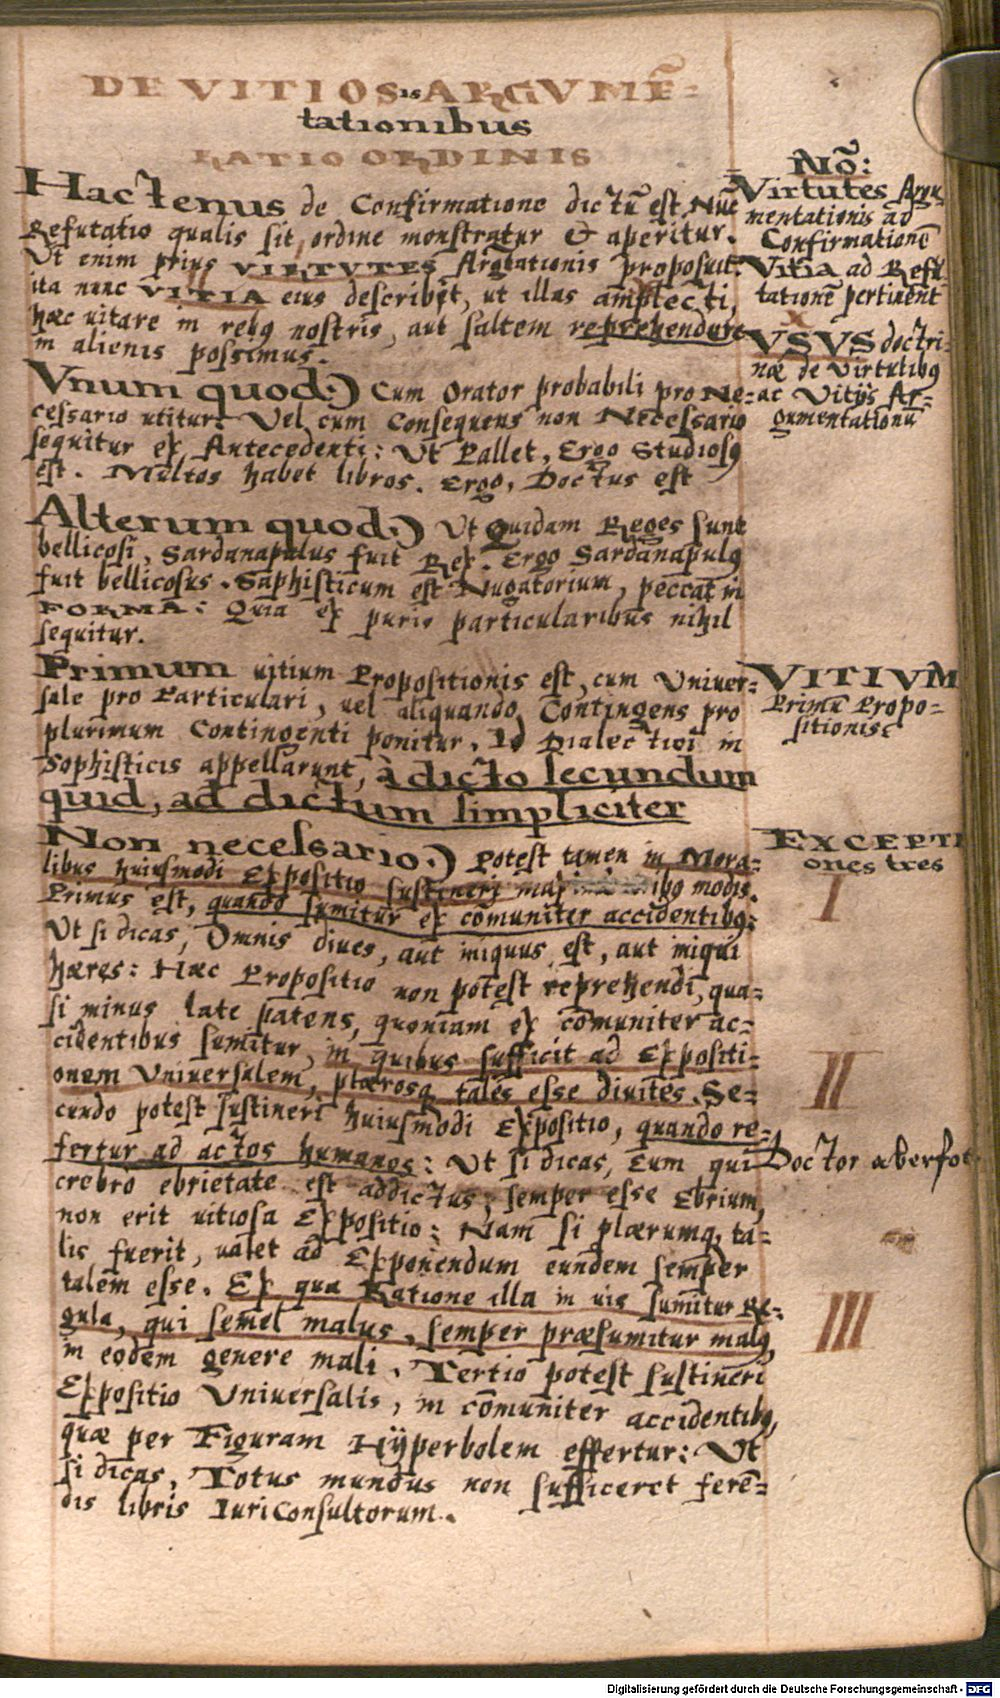 DE VITIOSis ARGVMĒ-
tationibus
RATIO ORDINIS
Hactenus de Confirmatione dictū est. Nūc
Refutatio qualis sit, ordine monstratur & aperitur.
Ut enim prius VIRTVTES Argtationis proposuit:
ita nunc VITIA eius describit, ut illas amplecti,
hæc uitare in rebus nostris, aut saltem reprehendere
in alienis possimus.
Vnum quod.) Cum Orator probabili pro Ne-
cessario utitur. Vel cum Consequens non Necessario
sequitur ex Antecedenti: Ut Pallet, Ergo Studiosus
est. Multos habet libros. Ergo, Doctus est
Alterum quod.) Ut Quidam Reges sunt
bellicosi, Sardanapalus fuit Rex. Ergo Sardanapulus
fuit bellicosus. Saphisticum est Nugatorium, peccat in
FORMA: Quia ex puris particularibus nihil
sequitur.
Primum uitium Propositionis est, cum Vniuer-
sale pro Particulari, uel aliquando Contingens pro
plurimum Contingenti ponitur. Id Dialectici in
Sophisticis appellarunt, à dicto secundum
quid, ad dictum simpliciter
Non necessario.) Potest tamen in Mora-
libus huiusmodi Expositio sustineri modis.
Primus est, quando sumitur ex cōmuniter accidentibus:
Ut si dicas, Omnis diues, aut iniquus est, aut iniqui
hæres: Hæc Propositio non potest reprehendi, qua-
si minus late patens, quoniam ex cōmuniter ac-
cidentibus sumitur, in quibus sufficit ad Expositi-
onem Vniuersalem, plærosq tales esse diuites. Se-
cundo potest sustineri huiusmodi Expositio, quando re-
fertur ad actos humanos: Ut si dicas, Eum qui
crebro ebrietate est addictus, semper esse Ebrium,
non erit uitiosa Expositio: Nam si plærumq, ta-
lis fuerit, ualet ad Exponendum eundem semper
talem esse. Ex qua Ratione illa in uis sumitur Re-
gula, qui semel malus, semper præsumitur malus,
in eodem genere mali. Tertio potest sustineri
Expositio Vniuersalis, in cōmuniter accidentibus,
quæ per Figuram Hÿperbolem effertur: Ut
si dicas, Totus mundus non sufficeret ferē-
dis libris IuriConsultorum.
Nō:
Virtutes Argu
mentationis ad
Confirmationē
Vitia ad Refu
tationē pertinent
VSVS doctri-
næ de Virtutibus
ac Vitijs Ar-
gumentationū
VITIVM
Primū Propo-
sitionis
EXCEPTI
ones tres
I
II
Doctor
III
Digitalisierung gefördert durch die Deutsche Forschungsgemeinschaft - DFG